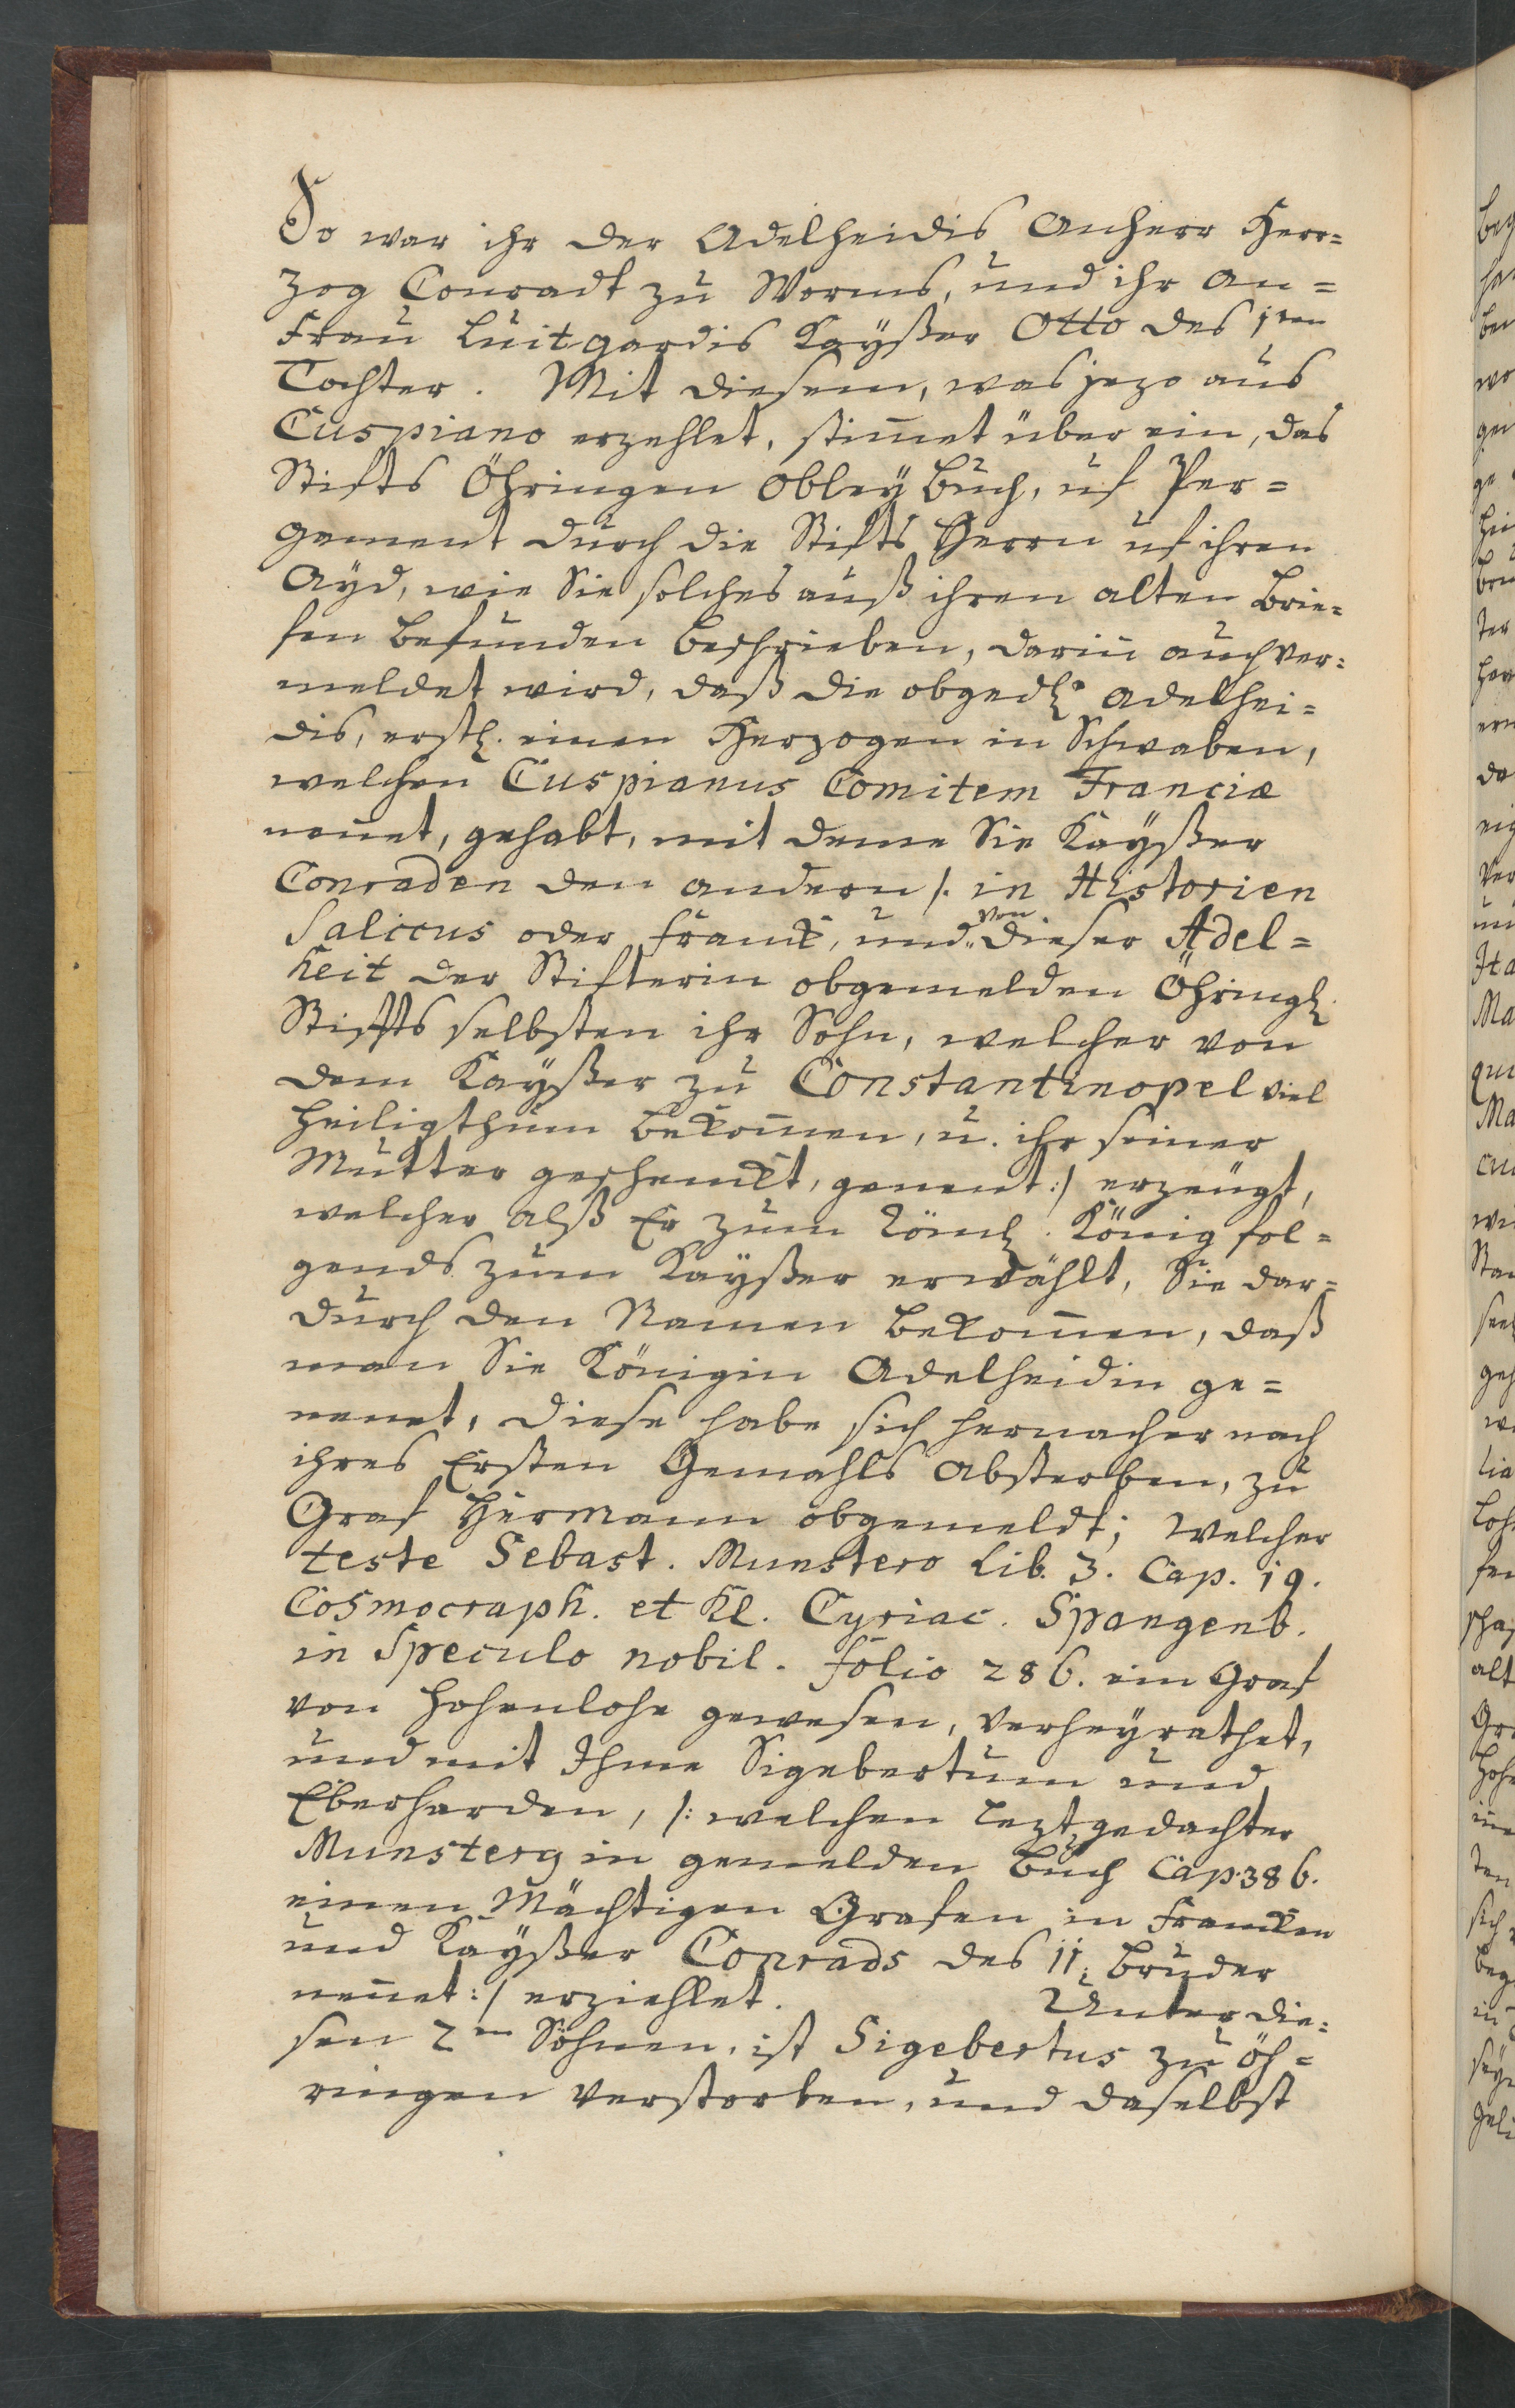 So war ihr der Adelheidis Anherr Herr=
zog Conradt zu Worms, und ihr An=
frau Luitgardis Kayßer Otto des 1ten
Tochter. Mit diesem, was jezo aus
Cuspiano erzehlet, stim̄et über ein, das
Stifts Öhringen Obley Buch, uf Per=
gement durch die Stifts Herrn uf ihren
Ayd, wie Sie solches auß ihren alten Brie=
fen befunden beschrieben, darin̄ auch ver=
meldet wird, daß die obgedh. Adelhei=
dis, erstl. einen Herzogen in Schwaben,
welchen Cuspianus Comitem Franciæ
nen̄et, gehabt, mit deme Sie Kayßer
Conraden den andern /: in Historien
Saliccus oder Franck, und von dieser Adel=
heit der Stifterin obgemelden Öhringl.
Stiffts selbsten ihr Sohn, welcher von
dem Kayßer zu Constantinopel viel
Heiligthum bekom̄en, u. ihr seiner
Mutter geschenckt, genent :/ erzeugt,
welcher alß Er zum Röml. König fol=
gends zum Kayßer erwählt, Sie dar=
durch den Namen bekom̄en, daß
man Sie Königin Adelheidin ge=
nenet, diese habe sich hernacher nach
ihres Ersten Gemahls Absterben, zu
Graf Hermann obgemeldt; welcher
teste Sebast. Munstero Lib. 3. Cap. 19.
Cosmocraph. et Kl. Cyriac. Spangenb.
in Speculo nobil. folio 286. ein Graf
von Hohenlohe gewesen, verheyrathet,
und mit Ihme Sigebertum und
Eberharden, /: welchen leztgedachter
Munsterg in gemelden Buch Cap. 386.
einen Mächtigen Grafen in Francken
und Kayßer Conrads des II. Bruder
nen̄et :/ erziehlet. Unter die=
sen 2en Söhnen, ist Sigebertus zu Öh=
ringen verstorben, und daselbst